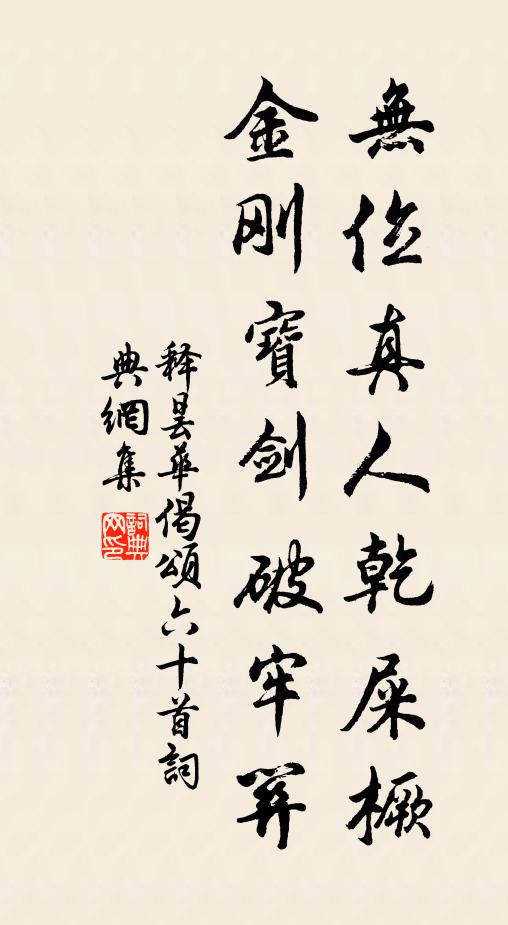 無位真人乾屎橛
金刚寶剑破牢關
释昙華偈頌六十首詞
典網集
詞典
网印